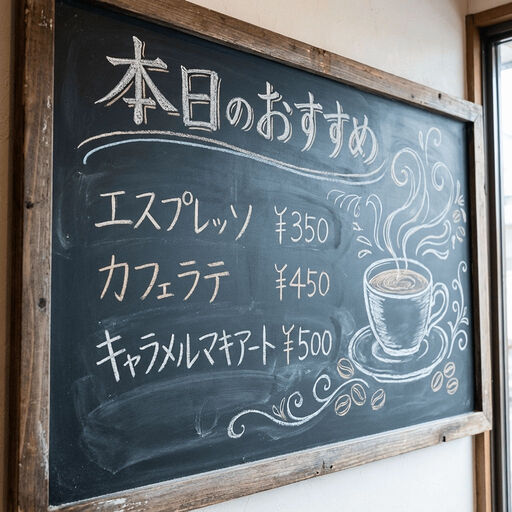 本日のおすすめ
エスプレッソ ¥350
カフェラテ ¥450
キャラメルマキアート ¥500